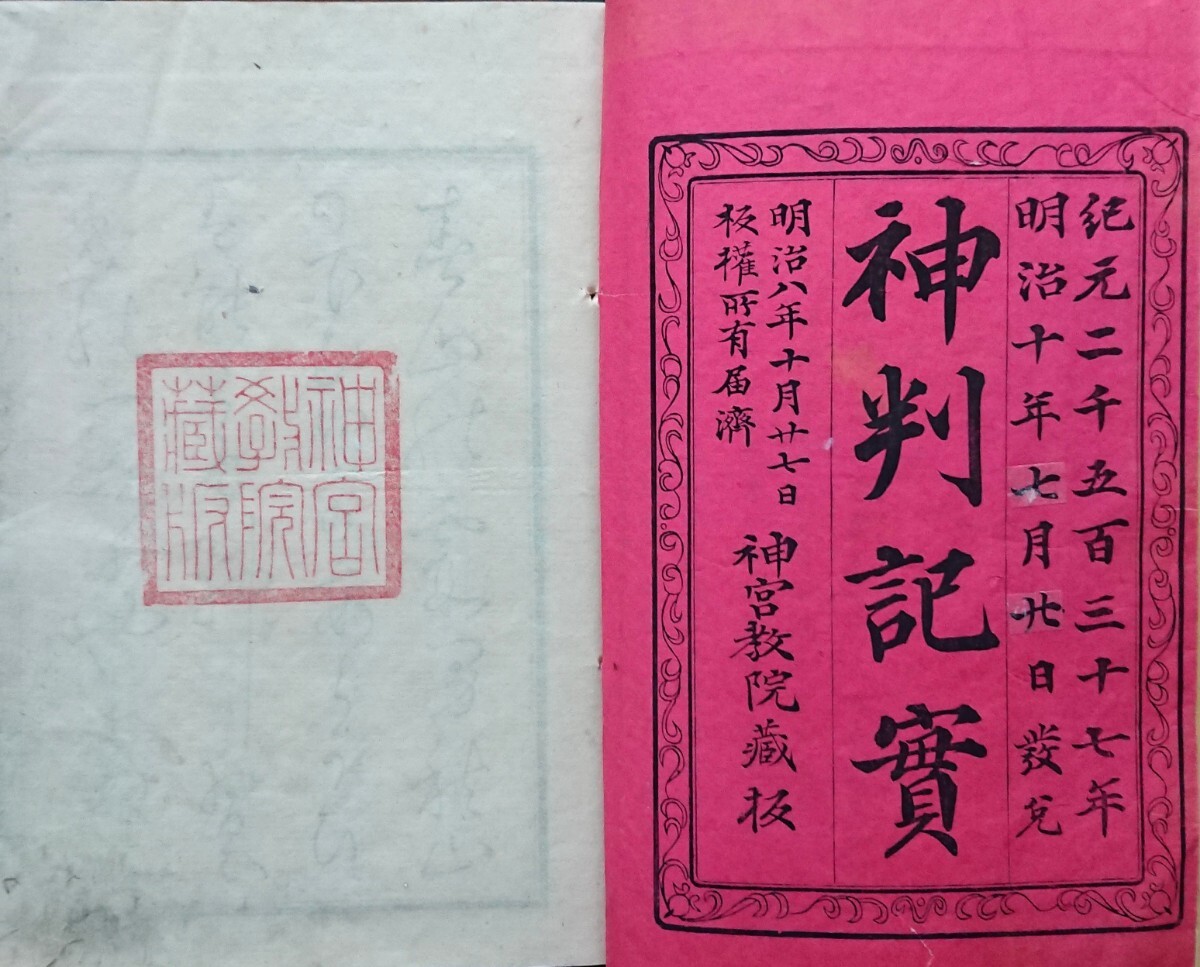 紀元二千五百三十七年
明治十年七月廿日發兌
神判記實
明治八年十月廿七日
板權所有届濟
神宮教院藏板
神宮
教院
藏版